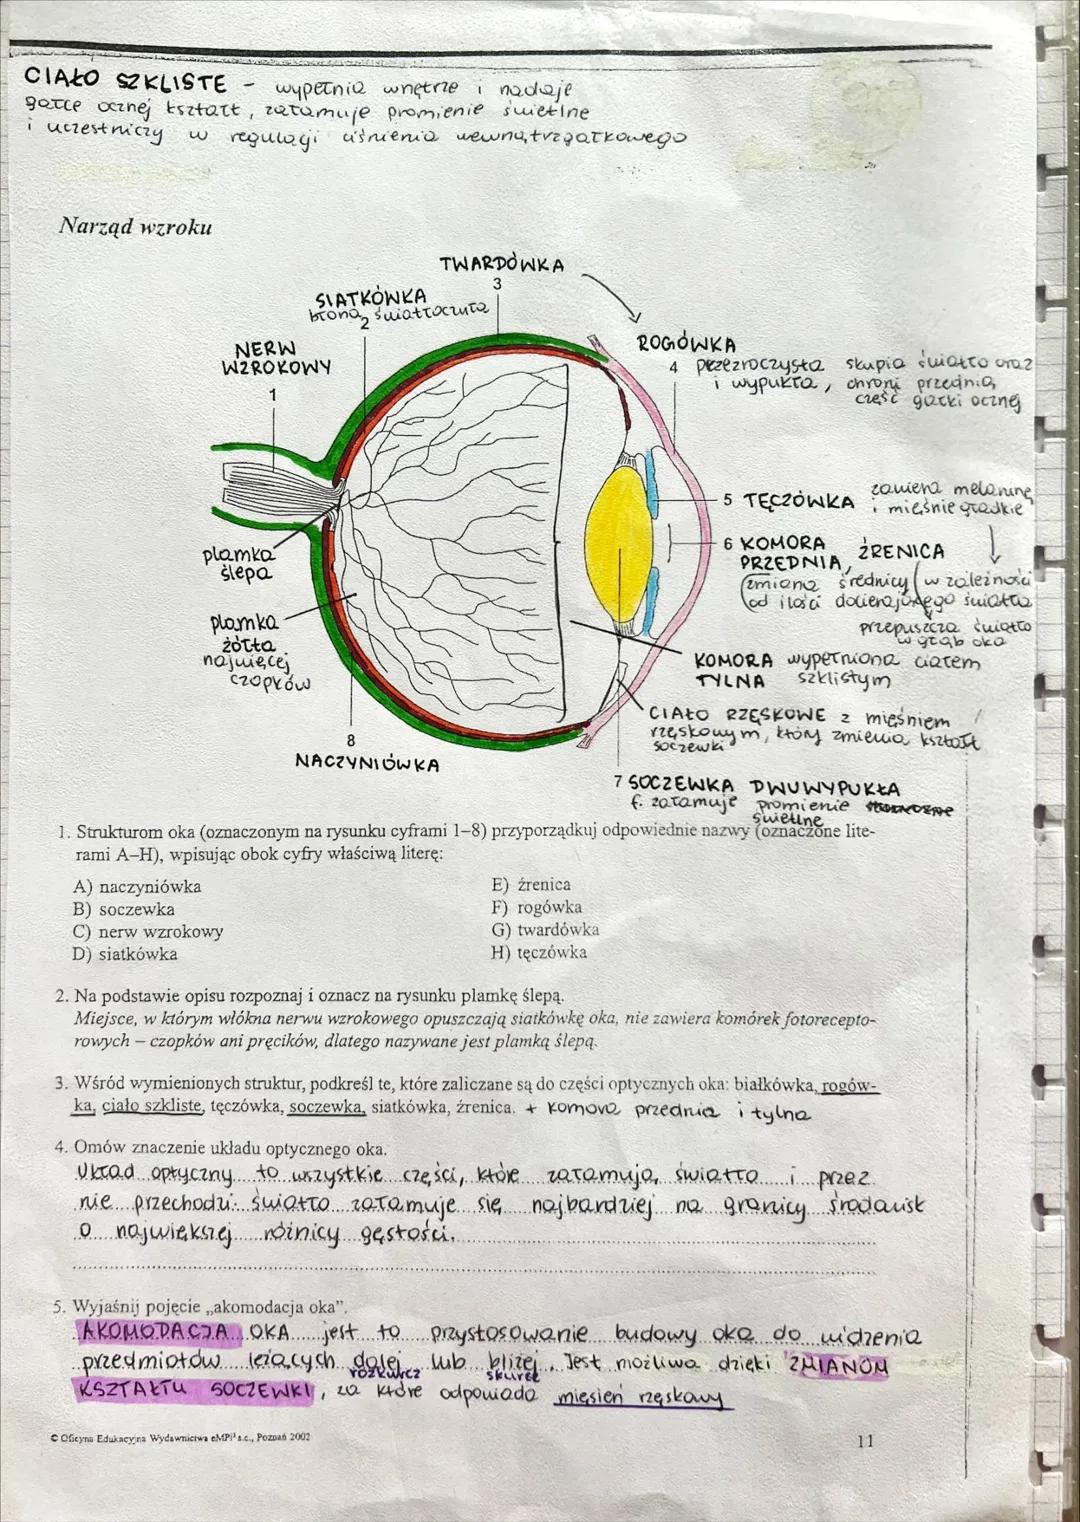 CIAŁO SZKLISTE - wypełnia wnętrze i nadaje
gałce ocznej kształt, załamuje promienie świetlne
i uczestniczy w regulacji ciśnienia wewnątrzgałkowego
Narząd wzroku
TWARDÓWKA
3
SIATKÓWKA
błona światłoczuła
2
NERW
WZROKOWY
1
ROGÓWKA
4 przezroczysta skupia światło oraz
i wypukła, chroni przednią
część gałki ocznej
5 TĘCZÓWKA zawiera melaninę
i mięśnie gładkie
6 KOMORA PRZEDNIA, ŹRENICA
zmiana średnicy w zależności
od ilości docierającego światła
przepuszcza światło
w głąb oka
plamka
ślepa
plamka
żółta
najwięcej
czopków
KOMORA wypełniona ciałem
TYLNA szklistym
CIAŁO RZĘSKOWE z mięśniem
rzęskowym, który zmienia kształt
soczewki
8
NACZYNIÓWKA
7 SOCZEWKA DWUWYPUKŁA
f. załamuje promienie
świetlne
1. Strukturom oka (oznaczonym na rysunku cyframi 1–8) przyporządkuj odpowiednie nazwy (oznaczone lite-
rami A–H), wpisując obok cyfry właściwą literę:
A) naczyniówka
B) soczewka
C) nerw wzrokowy
D) siatkówka
E) źrenica
F) rogówka
G) twardówka
H) tęczówka
2. Na podstawie opisu rozpoznaj i oznacz na rysunku plamkę ślepą.
Miejsce, w którym włókna nerwu wzrokowego opuszczają siatkówkę oka, nie zawiera komórek fotorecepto-
rowych – czopków ani pręcików, dlatego nazywane jest plamką ślepą.
3. Wśród wymienionych struktur, podkreśl te, które zaliczane są do części optycznych oka: białkówka, rogów-
ka, ciało szkliste, tęczówka, soczewka, siatkówka, źrenica. + komora przednia i tylna
4. Omów znaczenie układu optycznego oka.
Układ optyczny to wszystkie części, które załamują światło i przez
nie przechodzi. światło załamuje się najbardziej na granicy środowisk
o największej różnicy gęstości.
5. Wyjaśnij pojęcie „akomodacja oka”.
AKOMODACJA OKA jest to przystosowanie budowy oka do widzenia
przedmiotów leżących dalej lub bliżej. Jest możliwa dzięki ZMIANOM
rozkurcz skurcz
KSZTAŁTU SOCZEWKI, za które odpowiada mięsień rzęskowy
© Oficyna Edukacyjna Wydawnictwa eMPi² s.c., Poznań 2002
11